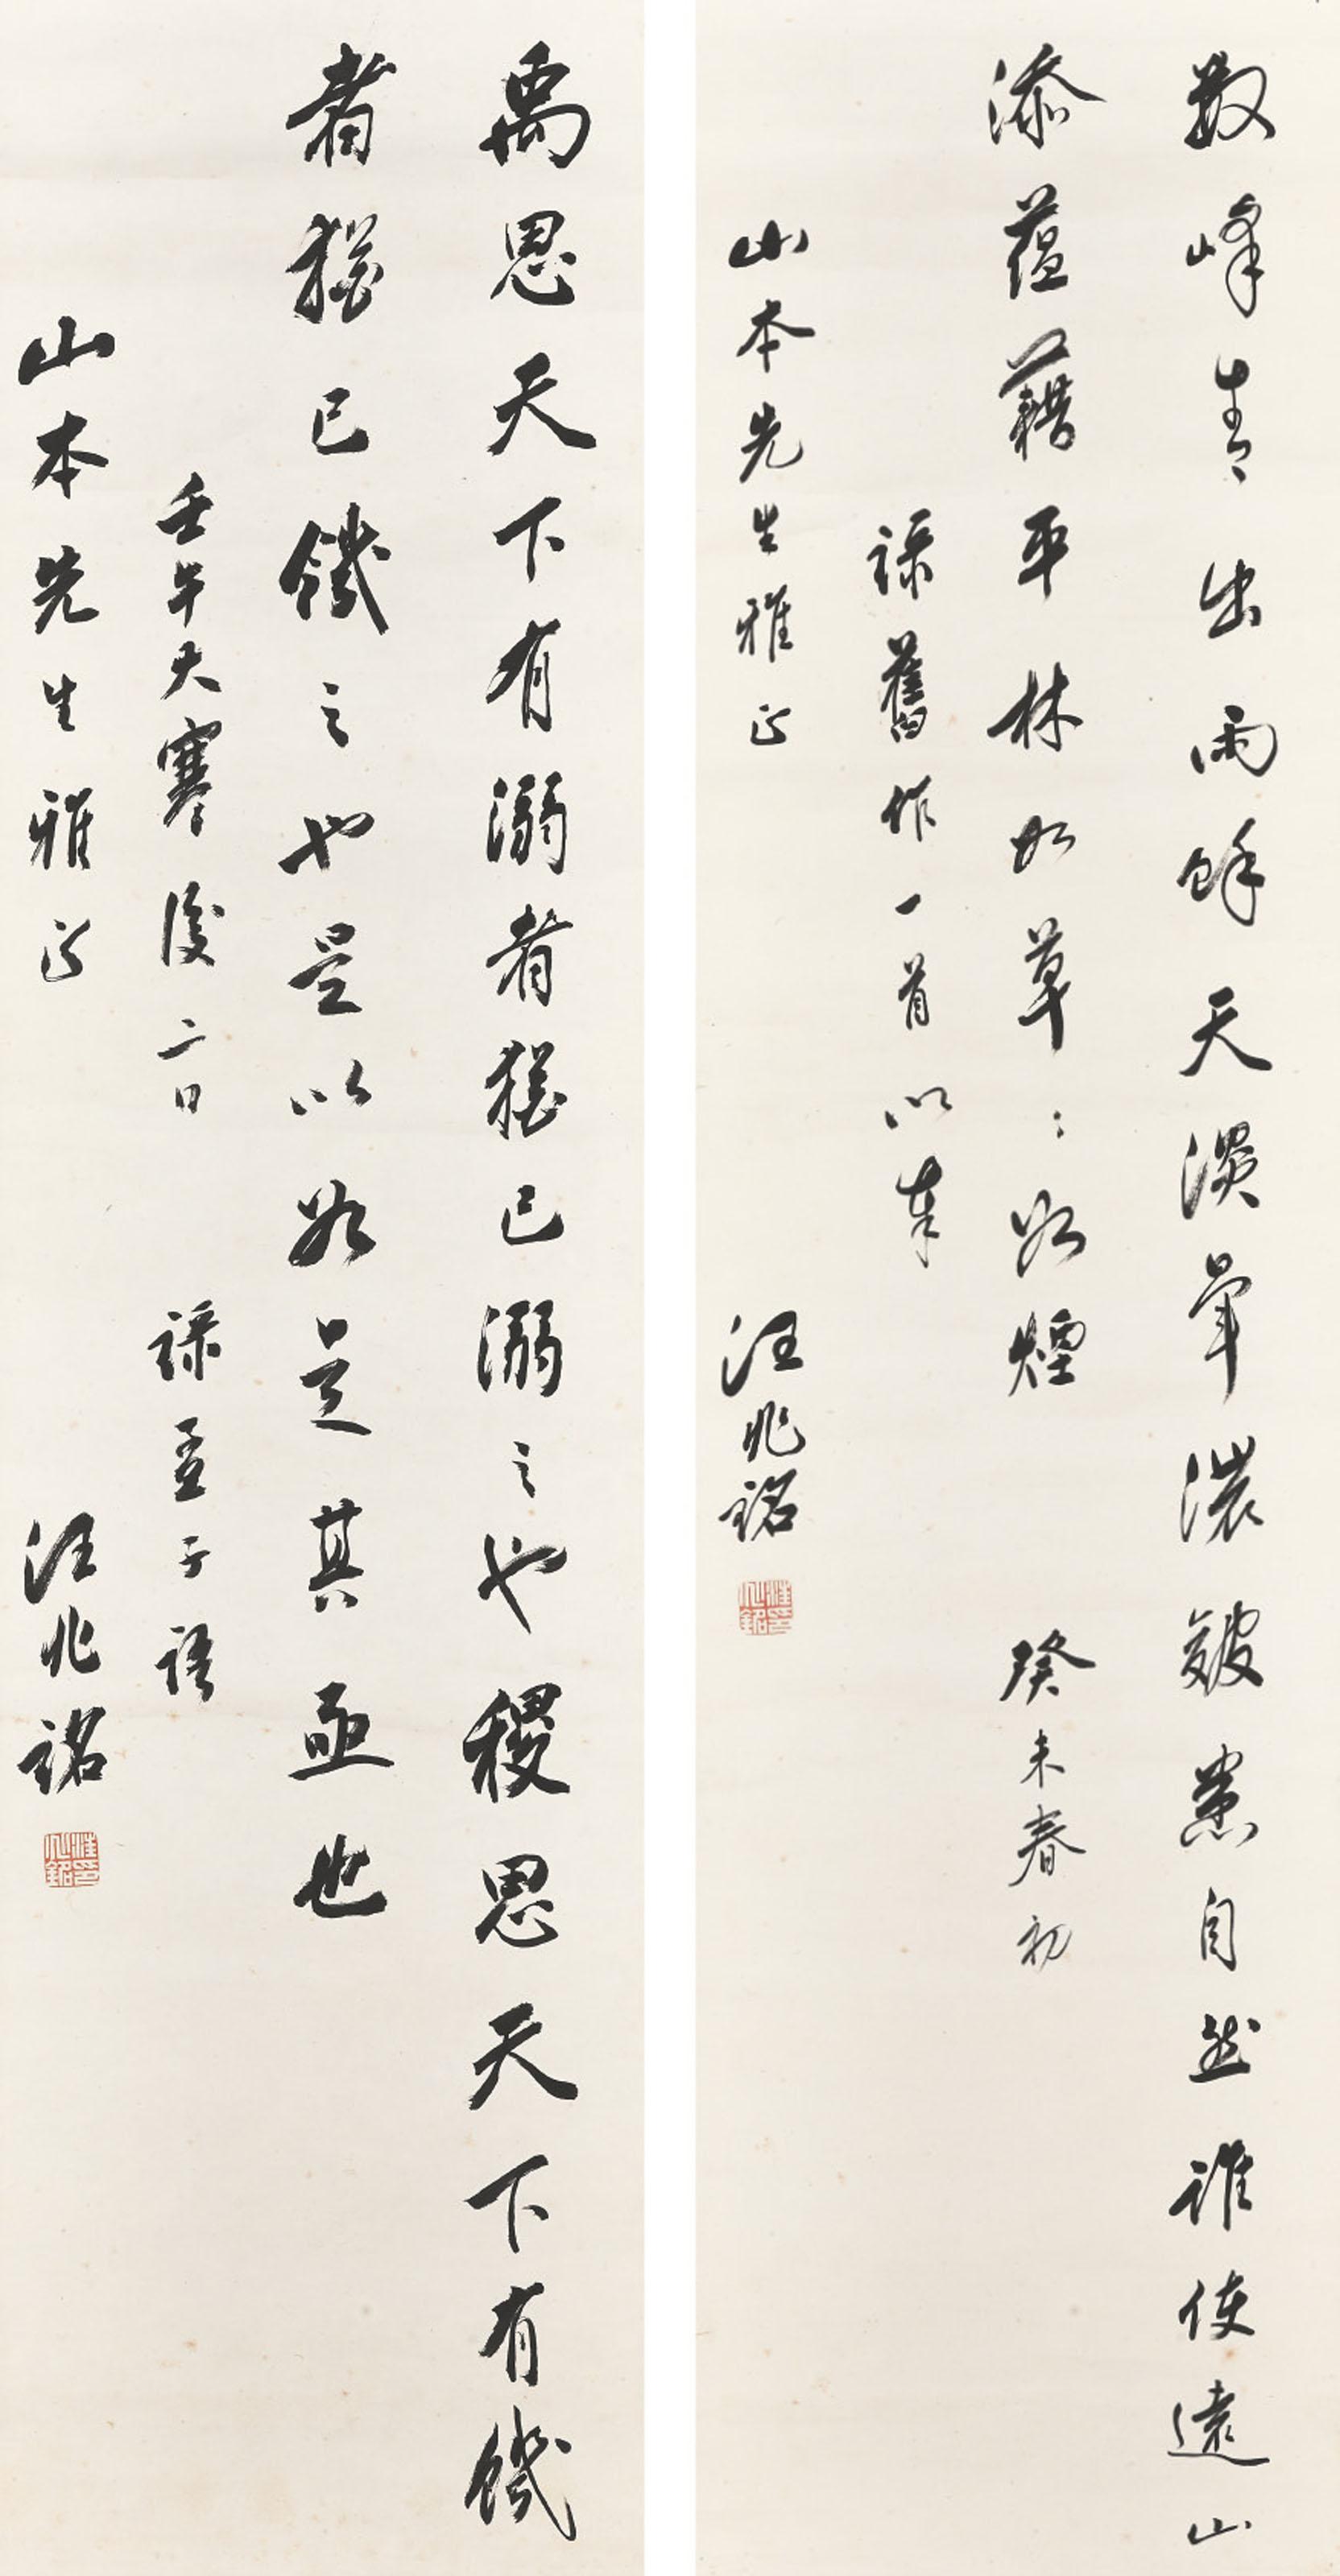 數峰青出雨餘天淡暈濃皴自然誰使遠山
添蘊藉平林如草〻如煙 癸未春初
錄舊作一首以奉
山本先生雅正 汪兆銘
汪兆銘印
禹思天下有溺者猶己溺之也稷思天下有饑
者猶己饑之也是以如是其亟也
壬午大寒後二日 錄孟子語
山本先生雅正 汪兆銘
汪兆銘印